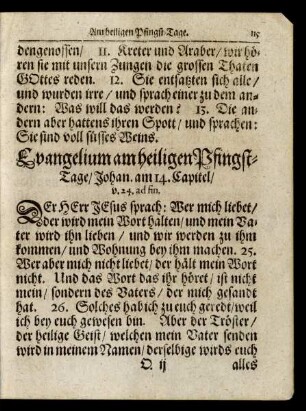 Am heiligen Pfingst-Tage. 115
dengenossen/ 11. Kreter und Araber/ wir hö-
ren sie mit unsern Zungen die grossen Thaten
GOttes reden. 12. Sie entsatzten sich alle/
und wurden irre/ und sprach einer zu dem an-
dern: Was will das werden? 13. Die an-
dern aber hattens ihren Spott/ und sprachen:
Sie sind voll süsses Weins.
Evangelium am heiligen Pfingst-
Tage/ Johan. am 14. Capitel/
v. 24. ad fin.
DEr HErr JEsus sprach: Wer mich liebet/
der wird mein Wort halten/ und mein Va-
ter wird ihn lieben/ und wir werden zu ihm
kommen/ und Wohnung bey ihm machen. 25.
Wer aber mich nicht liebet/ der hält mein Wort
nicht. Und das Wort das ihr höret/ ist nicht
mein/ sondern des Vaters/ der mich gesandt
hat. 26. Solches hab ich zu euch geredt/ weil
ich bey euch gewesen bin. Aber der Tröster/
der heilige Geist/ welchen mein Vater senden
wird in meinem Namen/ derselbige wirds euch
O ij alles